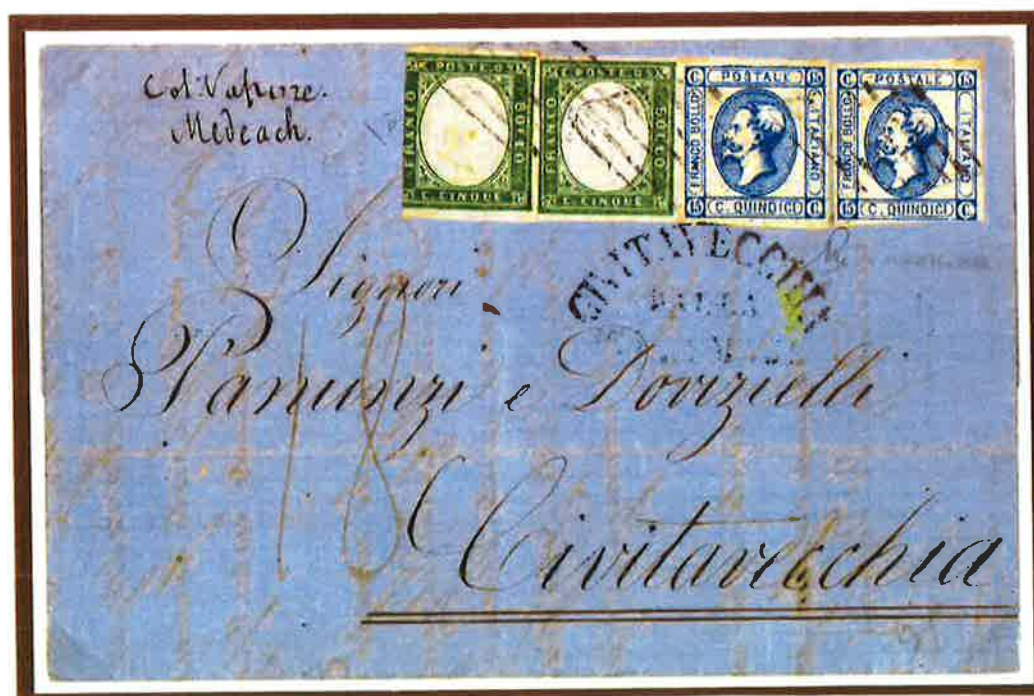 Col Vapore
Medeach.
FRANCO
C. POSTE
BOLLO
C. CINQUE
FRANCO
C. POSTE
BOLLO
C. CINQUE
C. POSTALE 15
FRANCO BOLLO
ITALIANO
15 C. QUINDICI C.
C. POSTALE 15
FRANCO BOLLO
ITALIANO
15 C. QUINDICI C.
CIVITAVECCHIA
DALLA
Signori
Vanunzi e Dovizielli
18
Civitavecchia